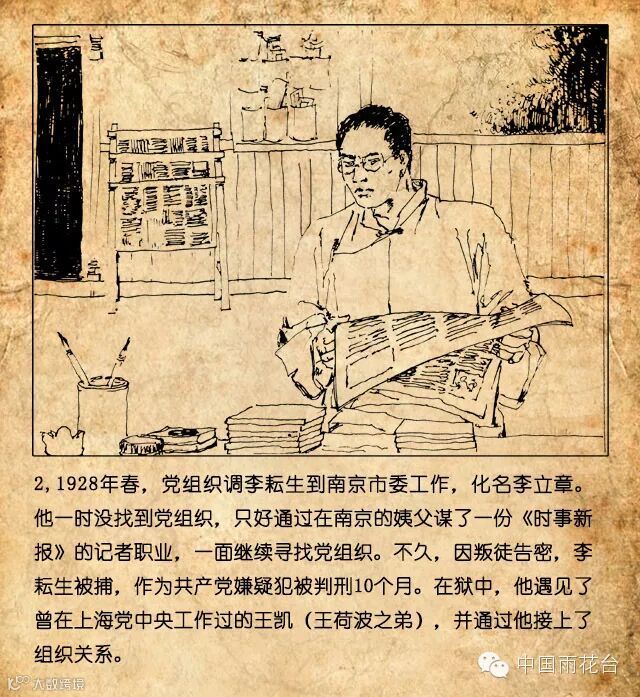 2,1928年春，党组织调李耘生到南京市委工作，化名李立章。
他一时没找到党组织，只好通过在南京的姨父谋了一份《时事新
报》的记者职业，一面继续寻找党组织。不久，因叛徒告密，李
耘生被捕，作为共产党嫌疑犯被判刑10个月。在狱中，他遇见了
曾在上海党中央工作过的王凯（王荷波之弟），并通过他接上了
组织关系。
中国雨花台
大数跨境